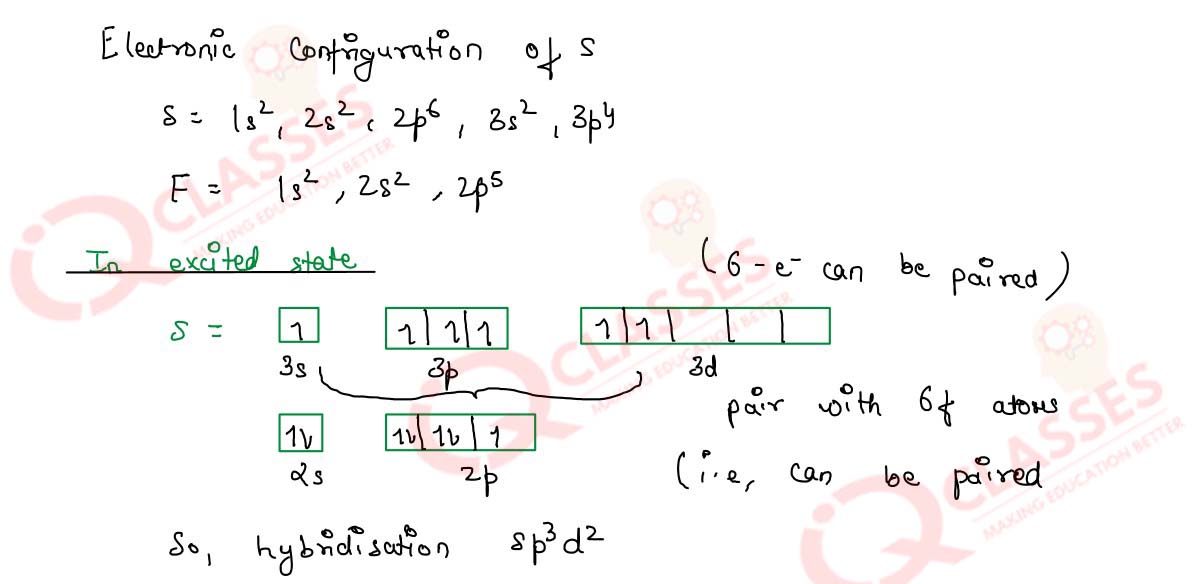 Electronic Configuration of S
S = 1s², 2s², 2p⁶, 3s², 3p⁴
F = 1s², 2s², 2p⁵
In excited state
(6 - e⁻ can be paired)
S = 1 1 1 1 1 1
3s 3p 3d
pair with 6f atoms
1v 1v 1v 1
2s 2p
(i.e, can be paired
So, hybridisation sp³d²
IQ CLASSES
MAKING EDUCATION BETTER
IQ CLASSES
MAKING EDUCATION BETTER
IQ CLASSES
MAKING EDUCATION BETTER